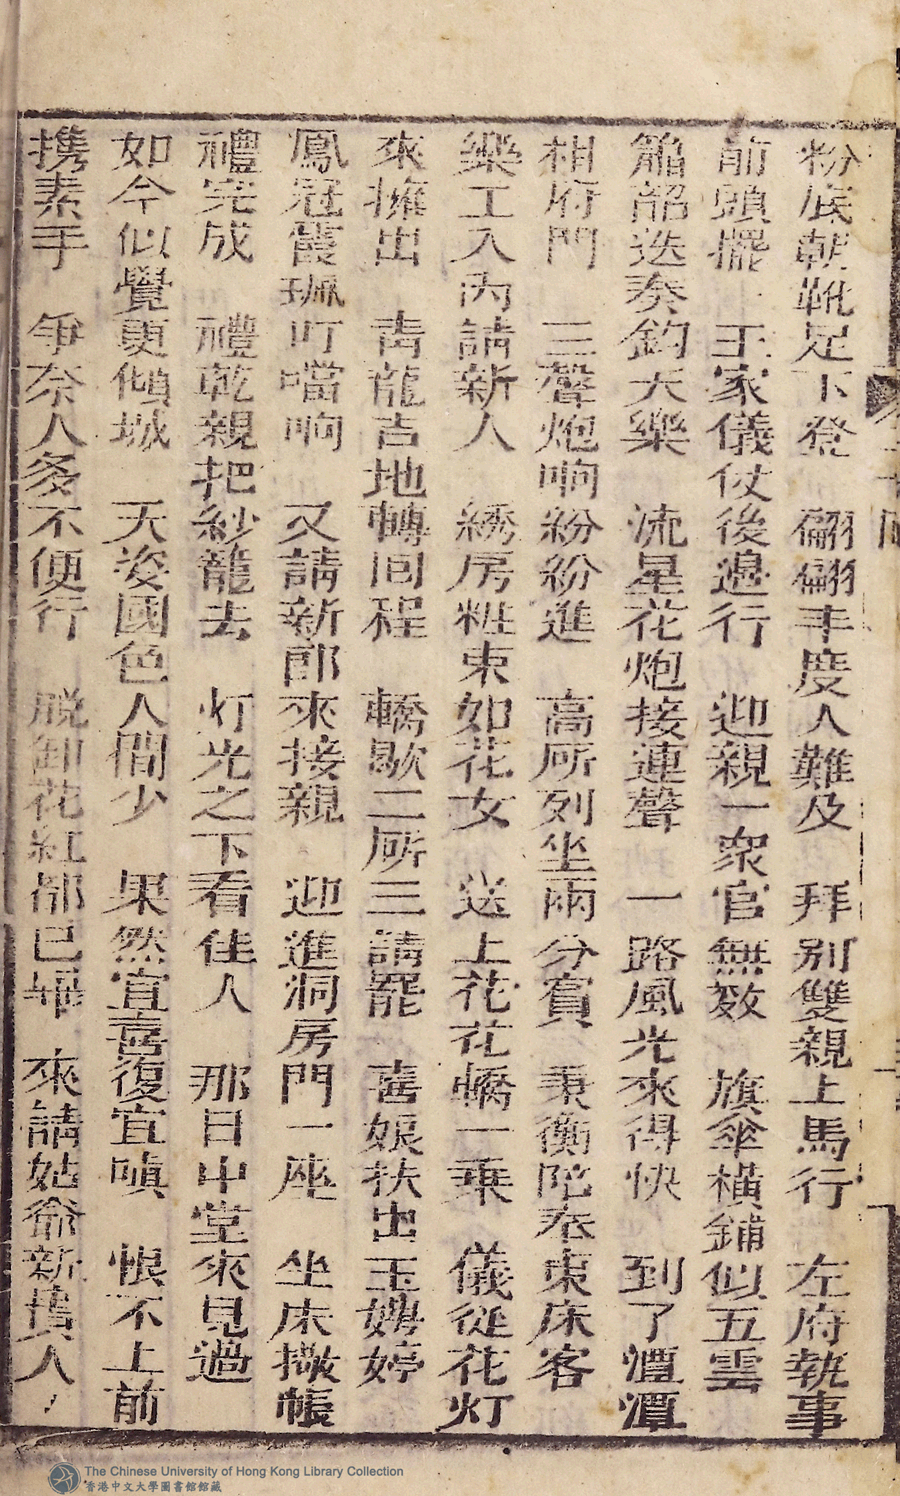 粉底朝靴足下登　翩翩丰度人難及　拜别雙親上馬行　左府執事
前頭擺　王家儀仗後邊行　迎親一衆官無数　旗傘橫鋪似五雲
簫韶迭奏鈞天樂　流星花炮接連聲　一路風光來得快　到了潭潭
相府門　三聲炮响紛紛進　高所列坐兩分賓　秉衡陀奉東床客
樂工入內請新人　綉房粧束如花女　送上花花轎一乗　儀從花灯
來擁出　青龍吉地轉回程　轎歇二所三請罷　喜娘扶出玉娉婷
鳳冠霞珮叮噹响　又請新郎來接親　迎進洞房門一座　坐床撒帳
禮完成　禮乾親把紗籠去　灯光之下看佳人　那日中堂來見過
如今似覺更傾城　天姿國色人間少　果然宜喜復宜嗔　恨不上前
携素手　争奈人多不便行　脱卸花紅都已畢　來請姑爺新舊人
The Chinese University of Hong Kong Library Collection
香港中文大學圖書館館藏